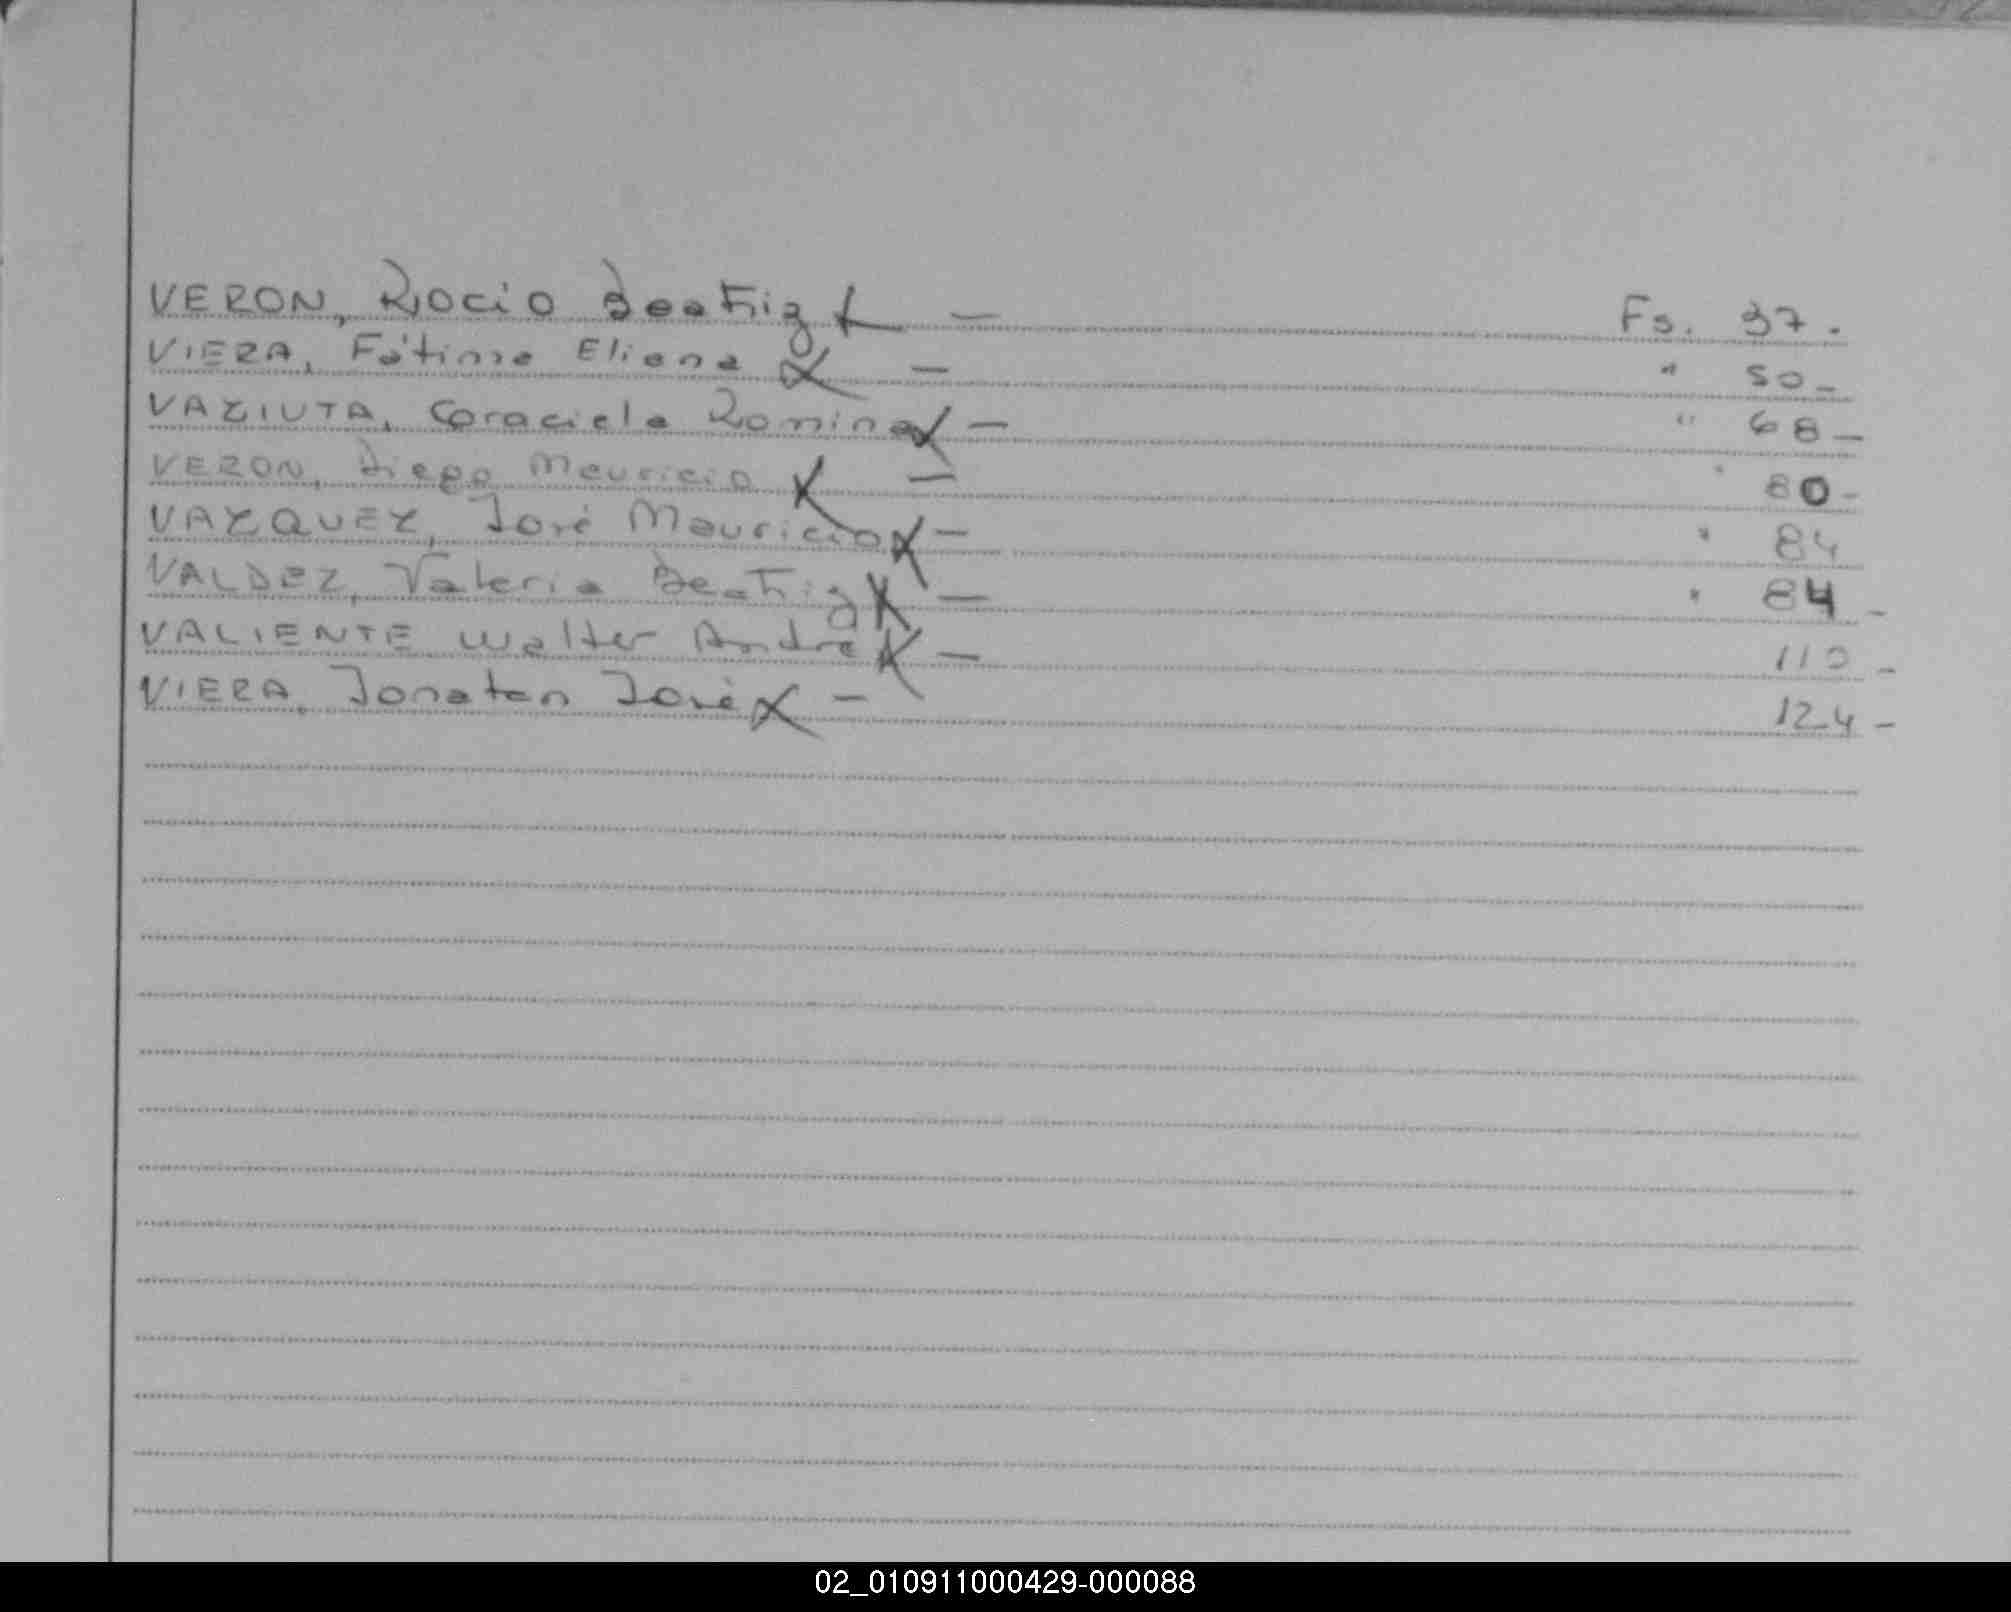 VERON, Rocio Beatriz — Fs. 37.
VIERA, Fátima Eliana — " 50 -
VAZIUTA, Graciela Romina — " 68 -
VERON, Diego Mauricio — " 80 -
VAZQUEZ, José Mauricio — " 84
VALDEZ, Valeria Beatriz — " 84 -
VALIENTE Walter André — 110 -
VIERA, Jonatan José — 124 -
02_010911000429-000088